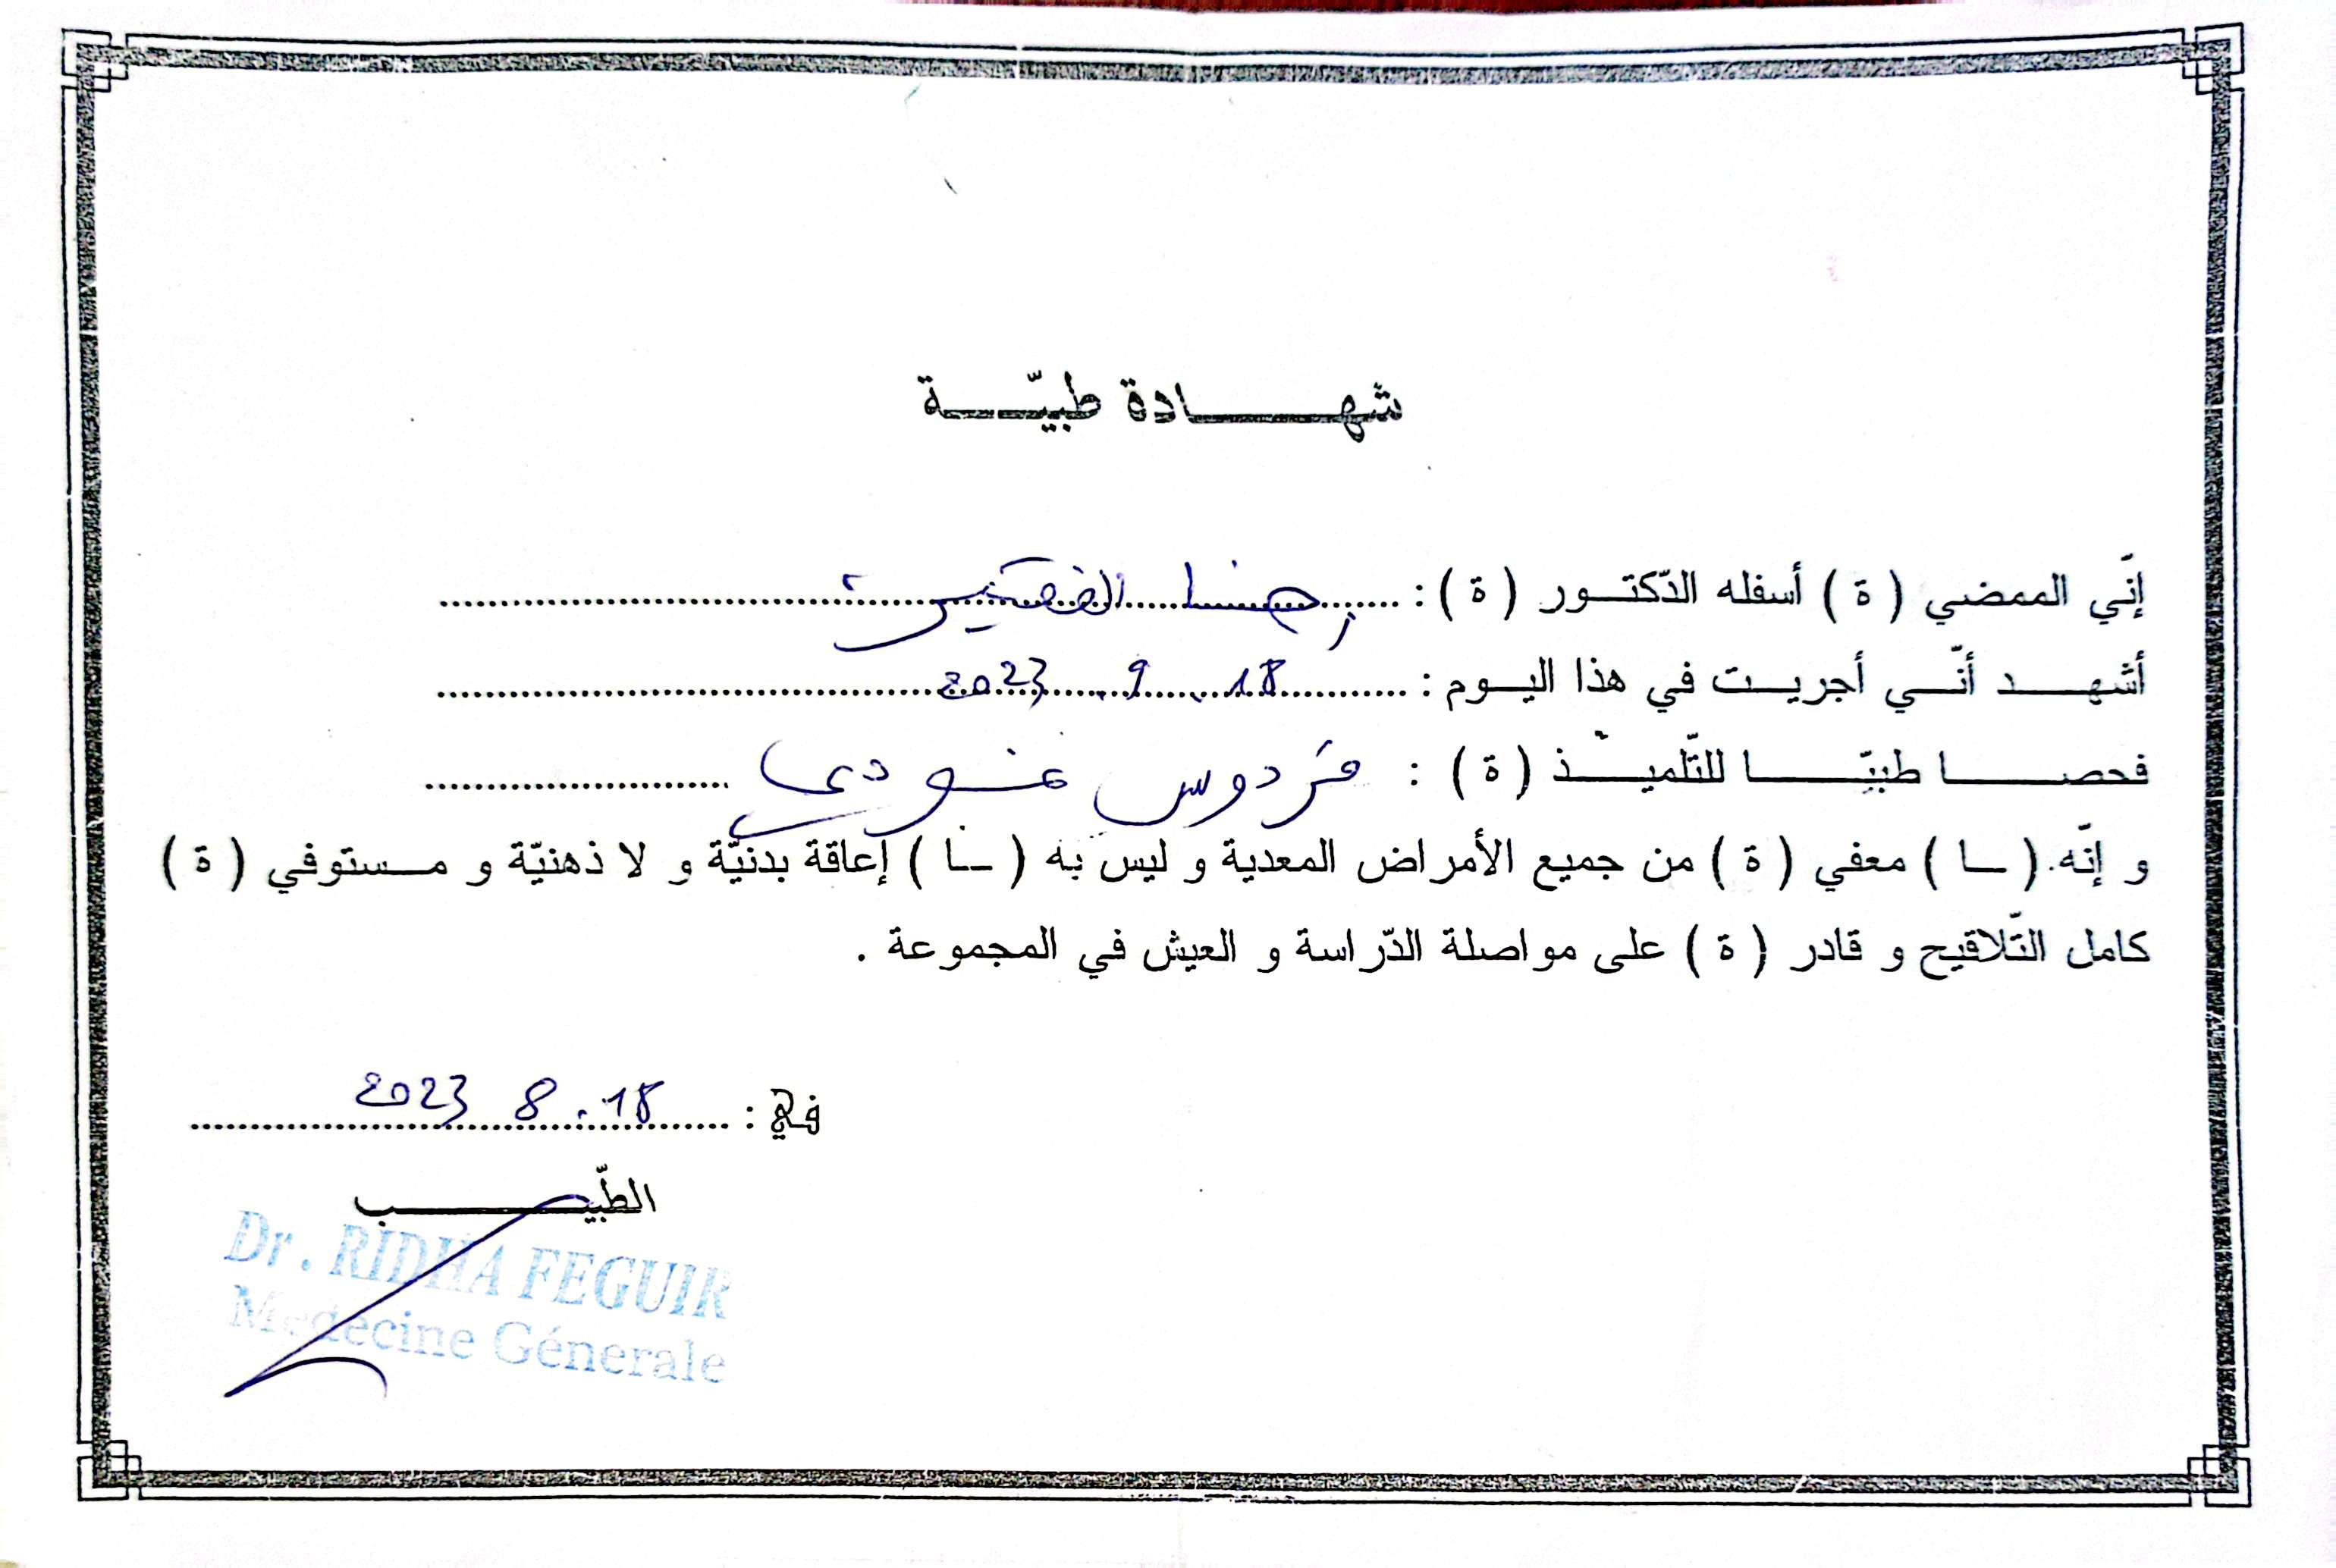 شهادة طبيّة
إنّي الممضي ( ة ) أسفله الدّكتور ( ة ) : رضا الفقير
أشهد أنّي أجريت في هذا اليوم : 18 . 9 . 2023
فحصا طبيّا للتّلميذ ( ة ) : فردوس
و إنّه ( ـا ) معفي ( ة ) من جميع الأمراض المعدية و ليس به ( ـا ) إعاقة بدنيّة و لا ذهنيّة و مستوفي ( ة )
كامل التّلاقيح و قادر ( ة ) على مواصلة الدّراسة و العيش في المجموعة .
في : 18 . 8 2023
الطّبيب
Dr . RIDHA FEGUIR
Medecine Génerale